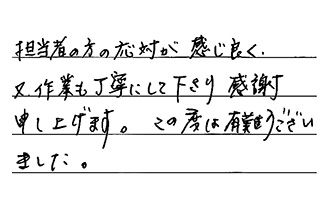 担当者の方の応対が 感じ良く、
又、作業も丁寧にして下さり 感謝
申し上げます。この度は有難うござい
ました。